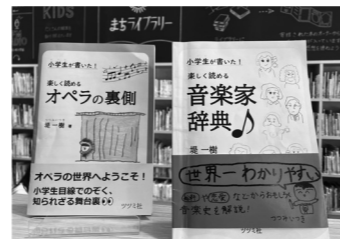 KIDS
まちライブラリー
小学生が書いた!
楽しく読める
オペラの裏側
堤 一樹
オペラの世界へようこそ!
小学生目線でのぞく、
知られざる舞台裏
ツツミ社
小学生が書いた!
楽しく読める
音楽家
辞典
堤 一樹
世界一わかりやすい
音楽史を解説!
ツツミ社